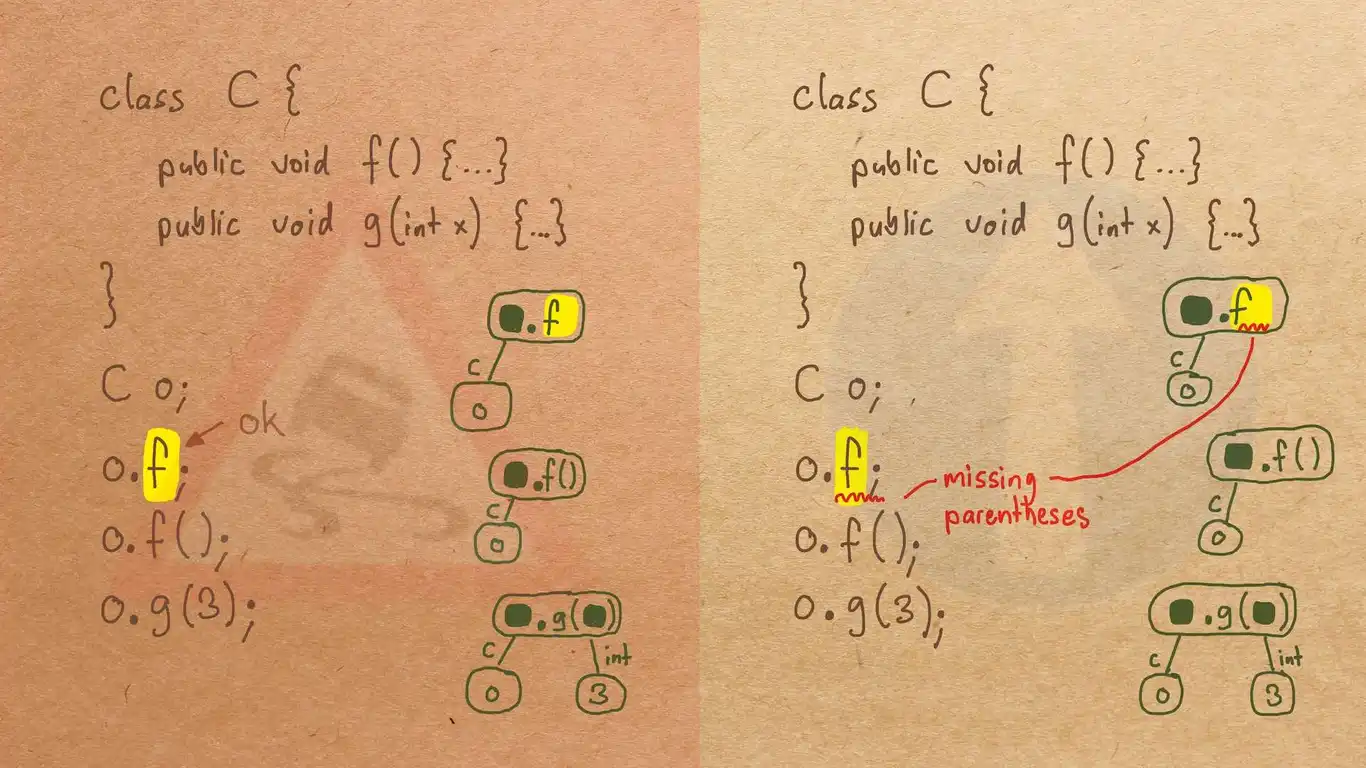 class C {
public void f() {...}
public void g(int x) {...}
}
C o;
o.f;
ok
o.f();
o.g(3);
.f
C
o
.f()
C
o
.g( )
C
int
o
3
class C {
public void f() {...}
public void g(int x) {...}
}
C o;
o.f;
missing
parentheses
o.f();
o.g(3);
.f
C
o
.f()
C
o
.g( )
C
int
o
3